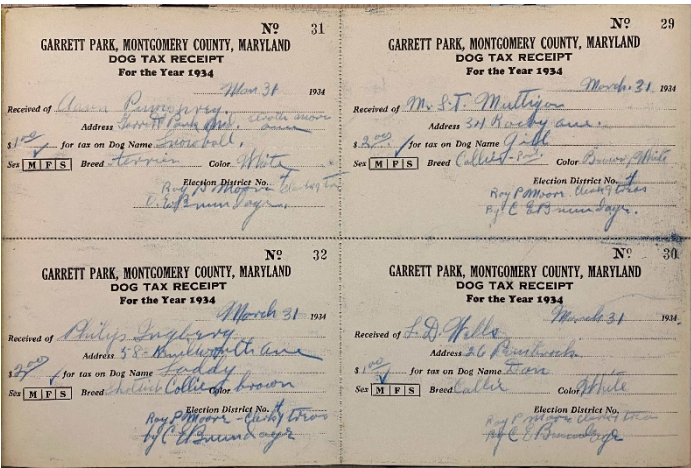 No 31
GARRETT PARK, MONTGOMERY COUNTY, MARYLAND
DOG TAX RECEIPT
For the Year 1934
Mar. 31 1934
Received of Pumphrey
Address Garrett Park Md.
$1.00 for tax on Dog Name Snowball
Sex M F S Breed terrier Color White
Election District No. 4
Roy P Moore
C. E. Brundage
No 29
GARRETT PARK, MONTGOMERY COUNTY, MARYLAND
DOG TAX RECEIPT
For the Year 1934
March. 31 1934
Received of M. S. T. Mulligan
Address 34 ave.
$2.00 for tax on Dog Name
Sex M F S Breed Collie Color Brown & White
Election District No. 4
Roy P Moore clerk & treas
By C E Brundage.
No 32
GARRETT PARK, MONTGOMERY COUNTY, MARYLAND
DOG TAX RECEIPT
For the Year 1934
March 31 1934
Received of Philip
Address 58 Kenilworth ave
$2.00 for tax on Dog Name Laddy
Sex M F S Breed Collie Color brown
Election District No. 4
Roy P Moore - clerk & treas
by C E Brundage
No 30
GARRETT PARK, MONTGOMERY COUNTY, MARYLAND
DOG TAX RECEIPT
For the Year 1934
March 31 1934
Received of L. D. Wells
Address 26
$1.00 for tax on Dog Name Don
Sex M F S Breed Collie Color White
Election District No. 4
Roy P Moore clerk & treas
By C E Brundage